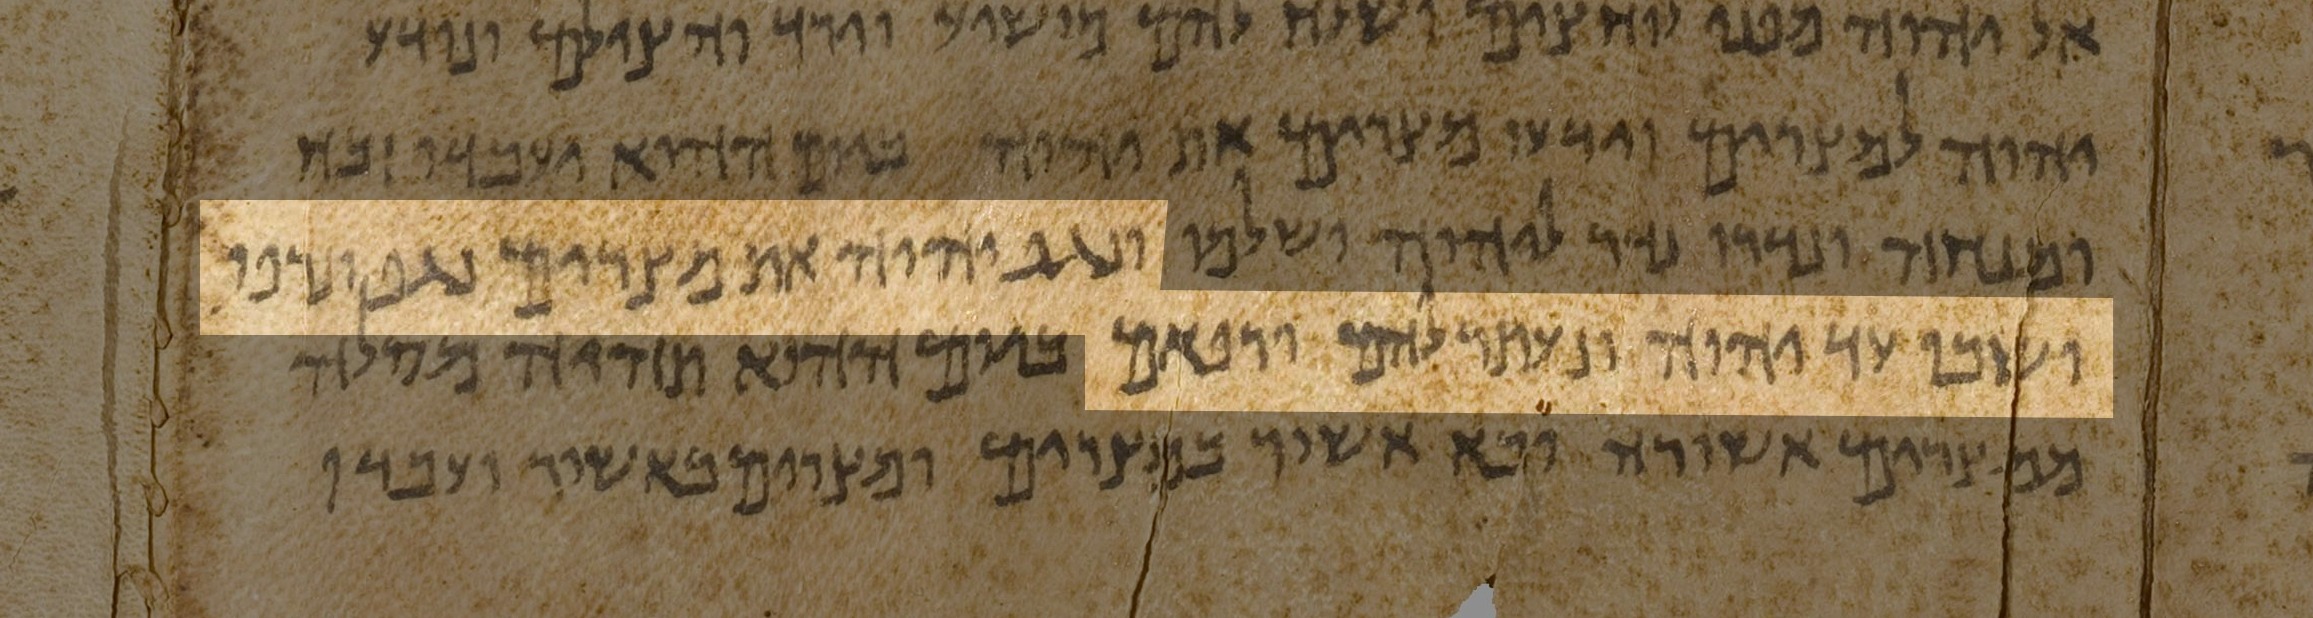 אל יהוה מפני לוחצים ושלח להם מושיע וירד והצילם ונודע
יהוה למצרים וידעו מצרים את יהוה ביום ההוא ועבדו זבח
ומנחה ונדרו נדר ליהוה ושלמו ונגף יהוה את מצרים נגף ונרפו
ושבו עד יהוה ונעתר להם ורפאם ביום ההוא תהיה מסלה
ממצרים אשורה ובא אשור במצרים ומצרים באשור ועבדו